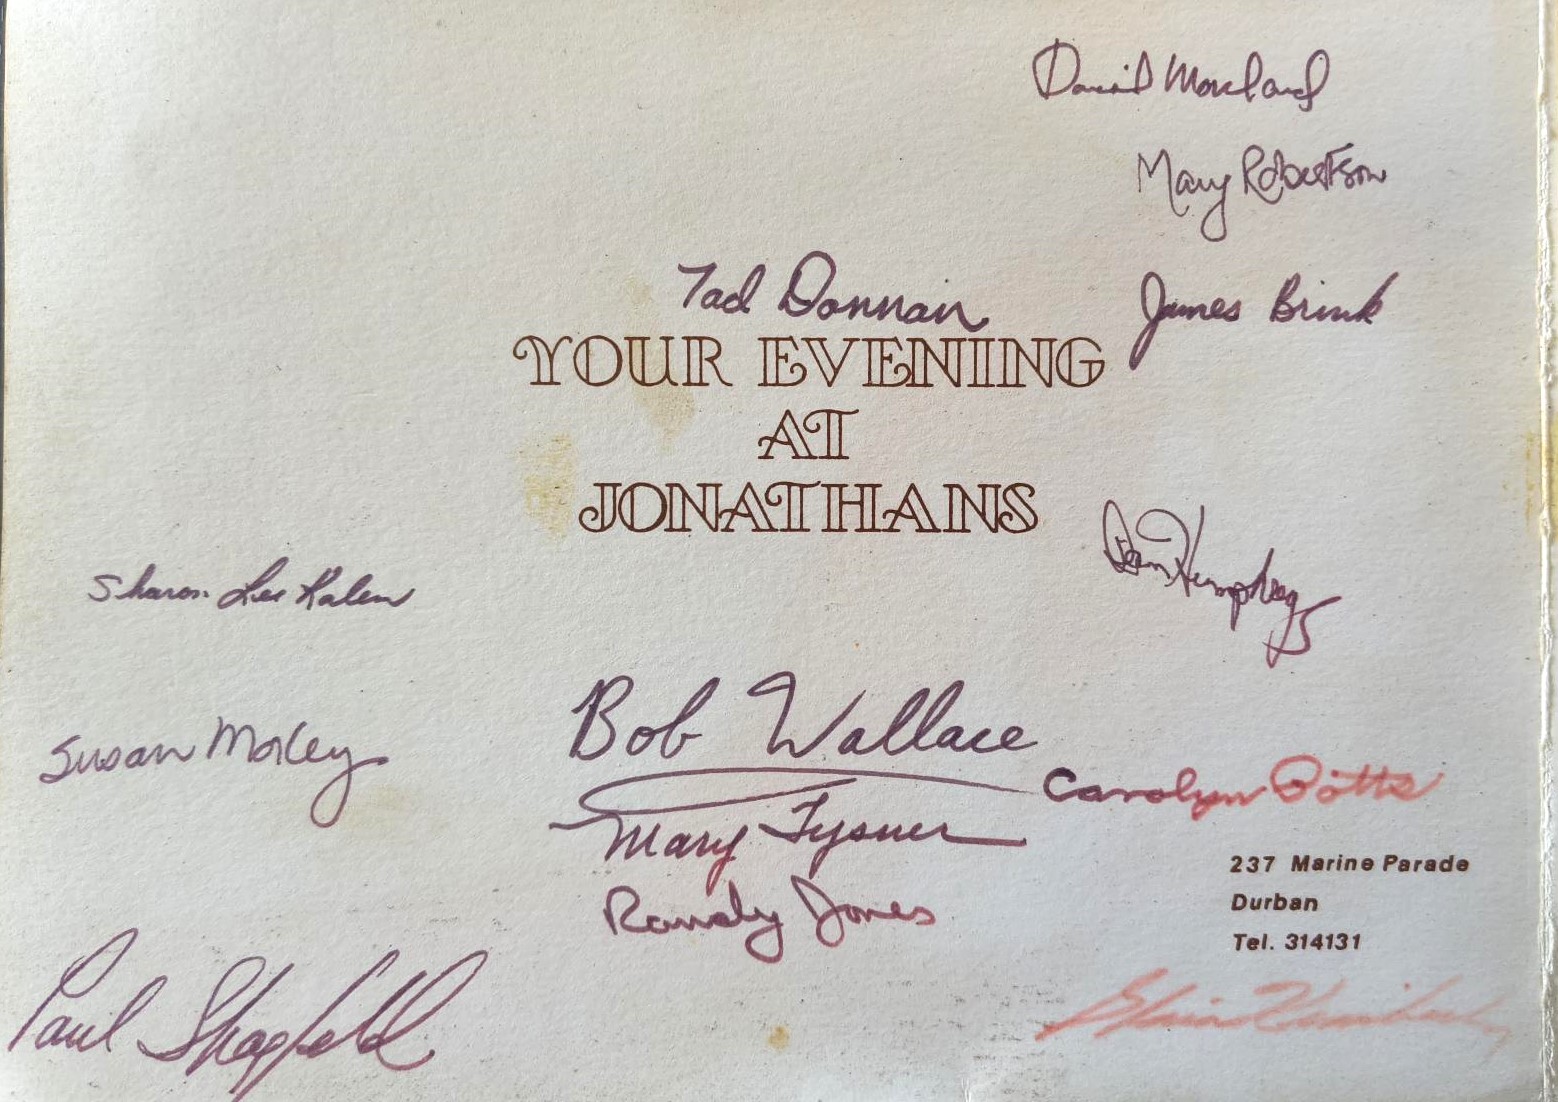 David Moreland
Mary Robertson
Tad Donnan
James Brink
YOUR EVENING
AT
JONATHANS
Dan Humphreys
Sharon Lee
Susan Morley
Bob Wallace
Carolyn Potts
Mary Tysner
237 Marine Parade
Randy Jones
Durban
Tel. 314131
Paul